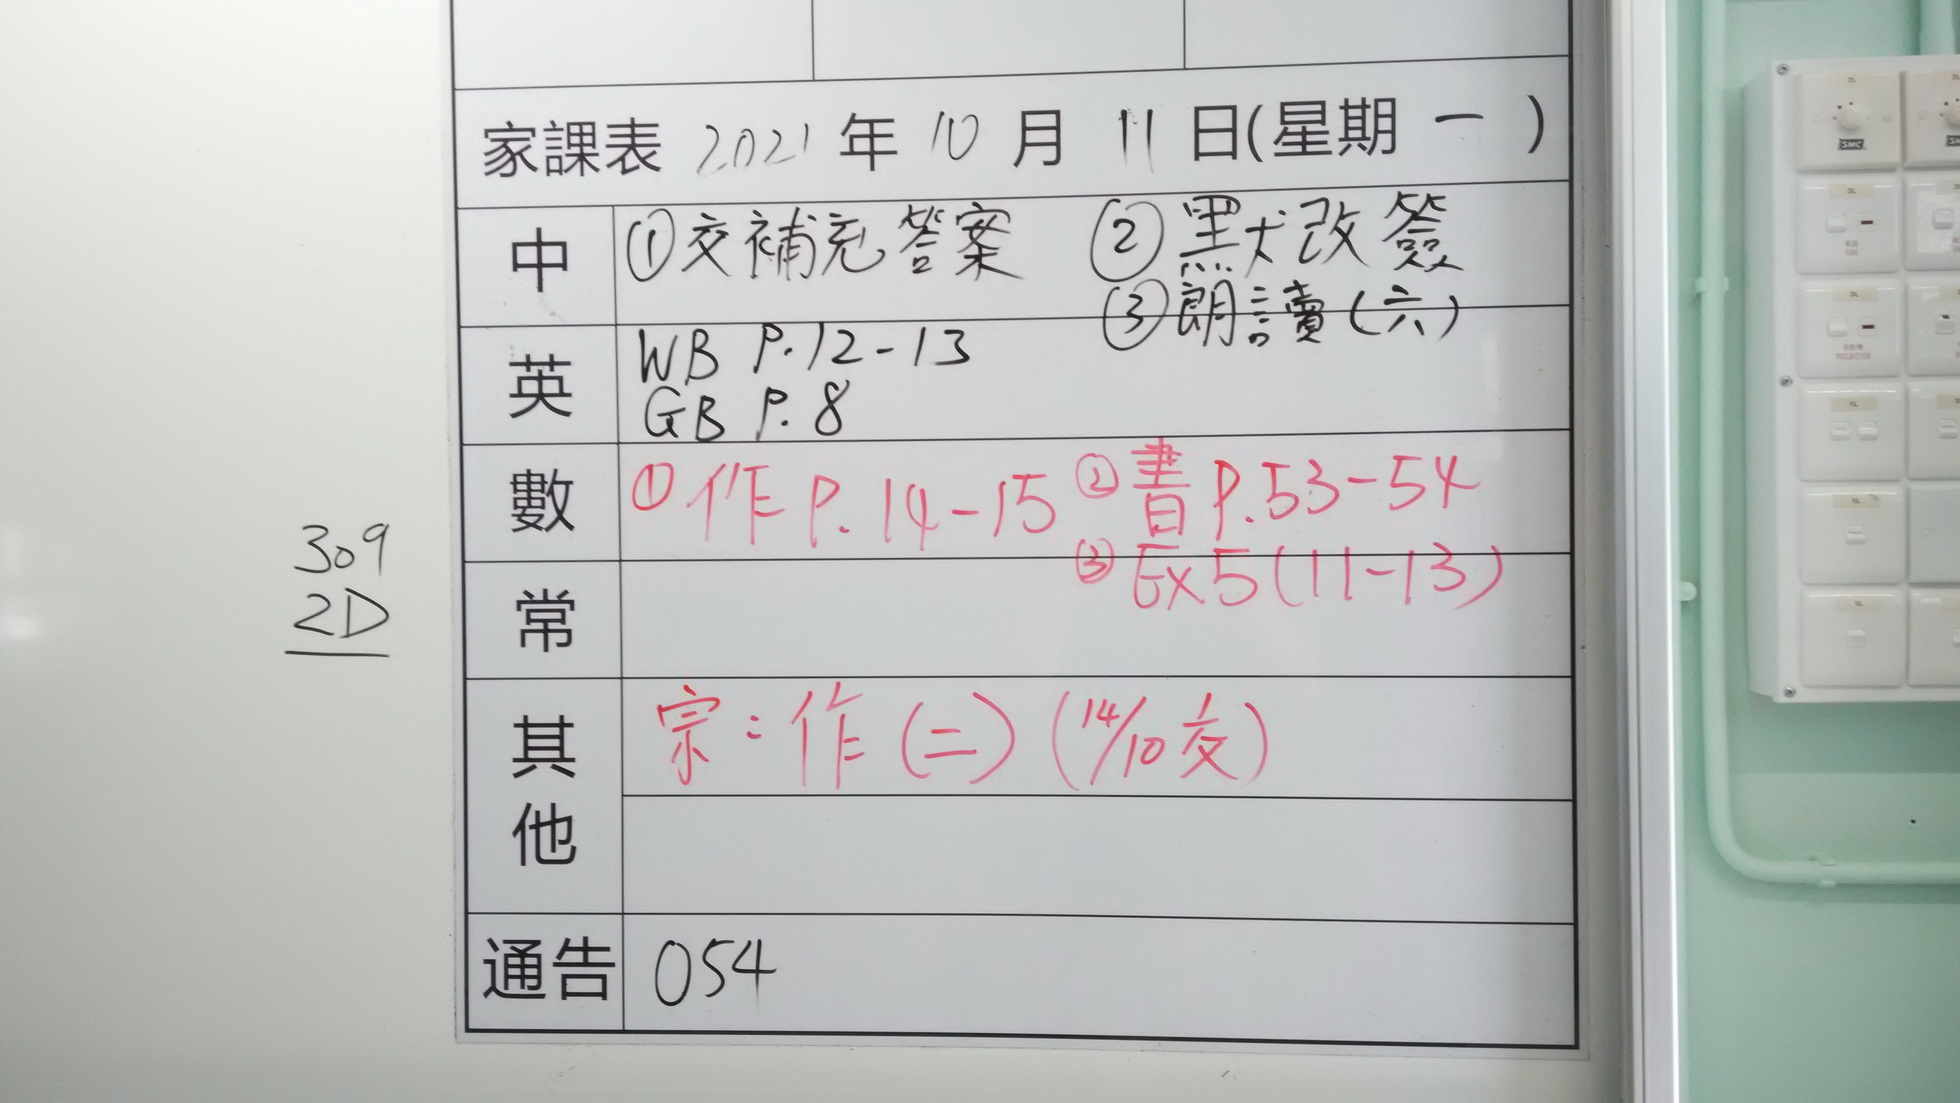 家課表 2021 年 10 月 11 日(星期 一 )
中 ①交補充答案 ②默改簽
③朗讀(六)
英 WB P.12-13
GB P.8
數 ①作 P.14-15 ②書 P.53-54
③Ex5(11-13)
常
其他 宗：作(二) (14/10交)
通告 054
309
2D
SMC
PROJECTOR